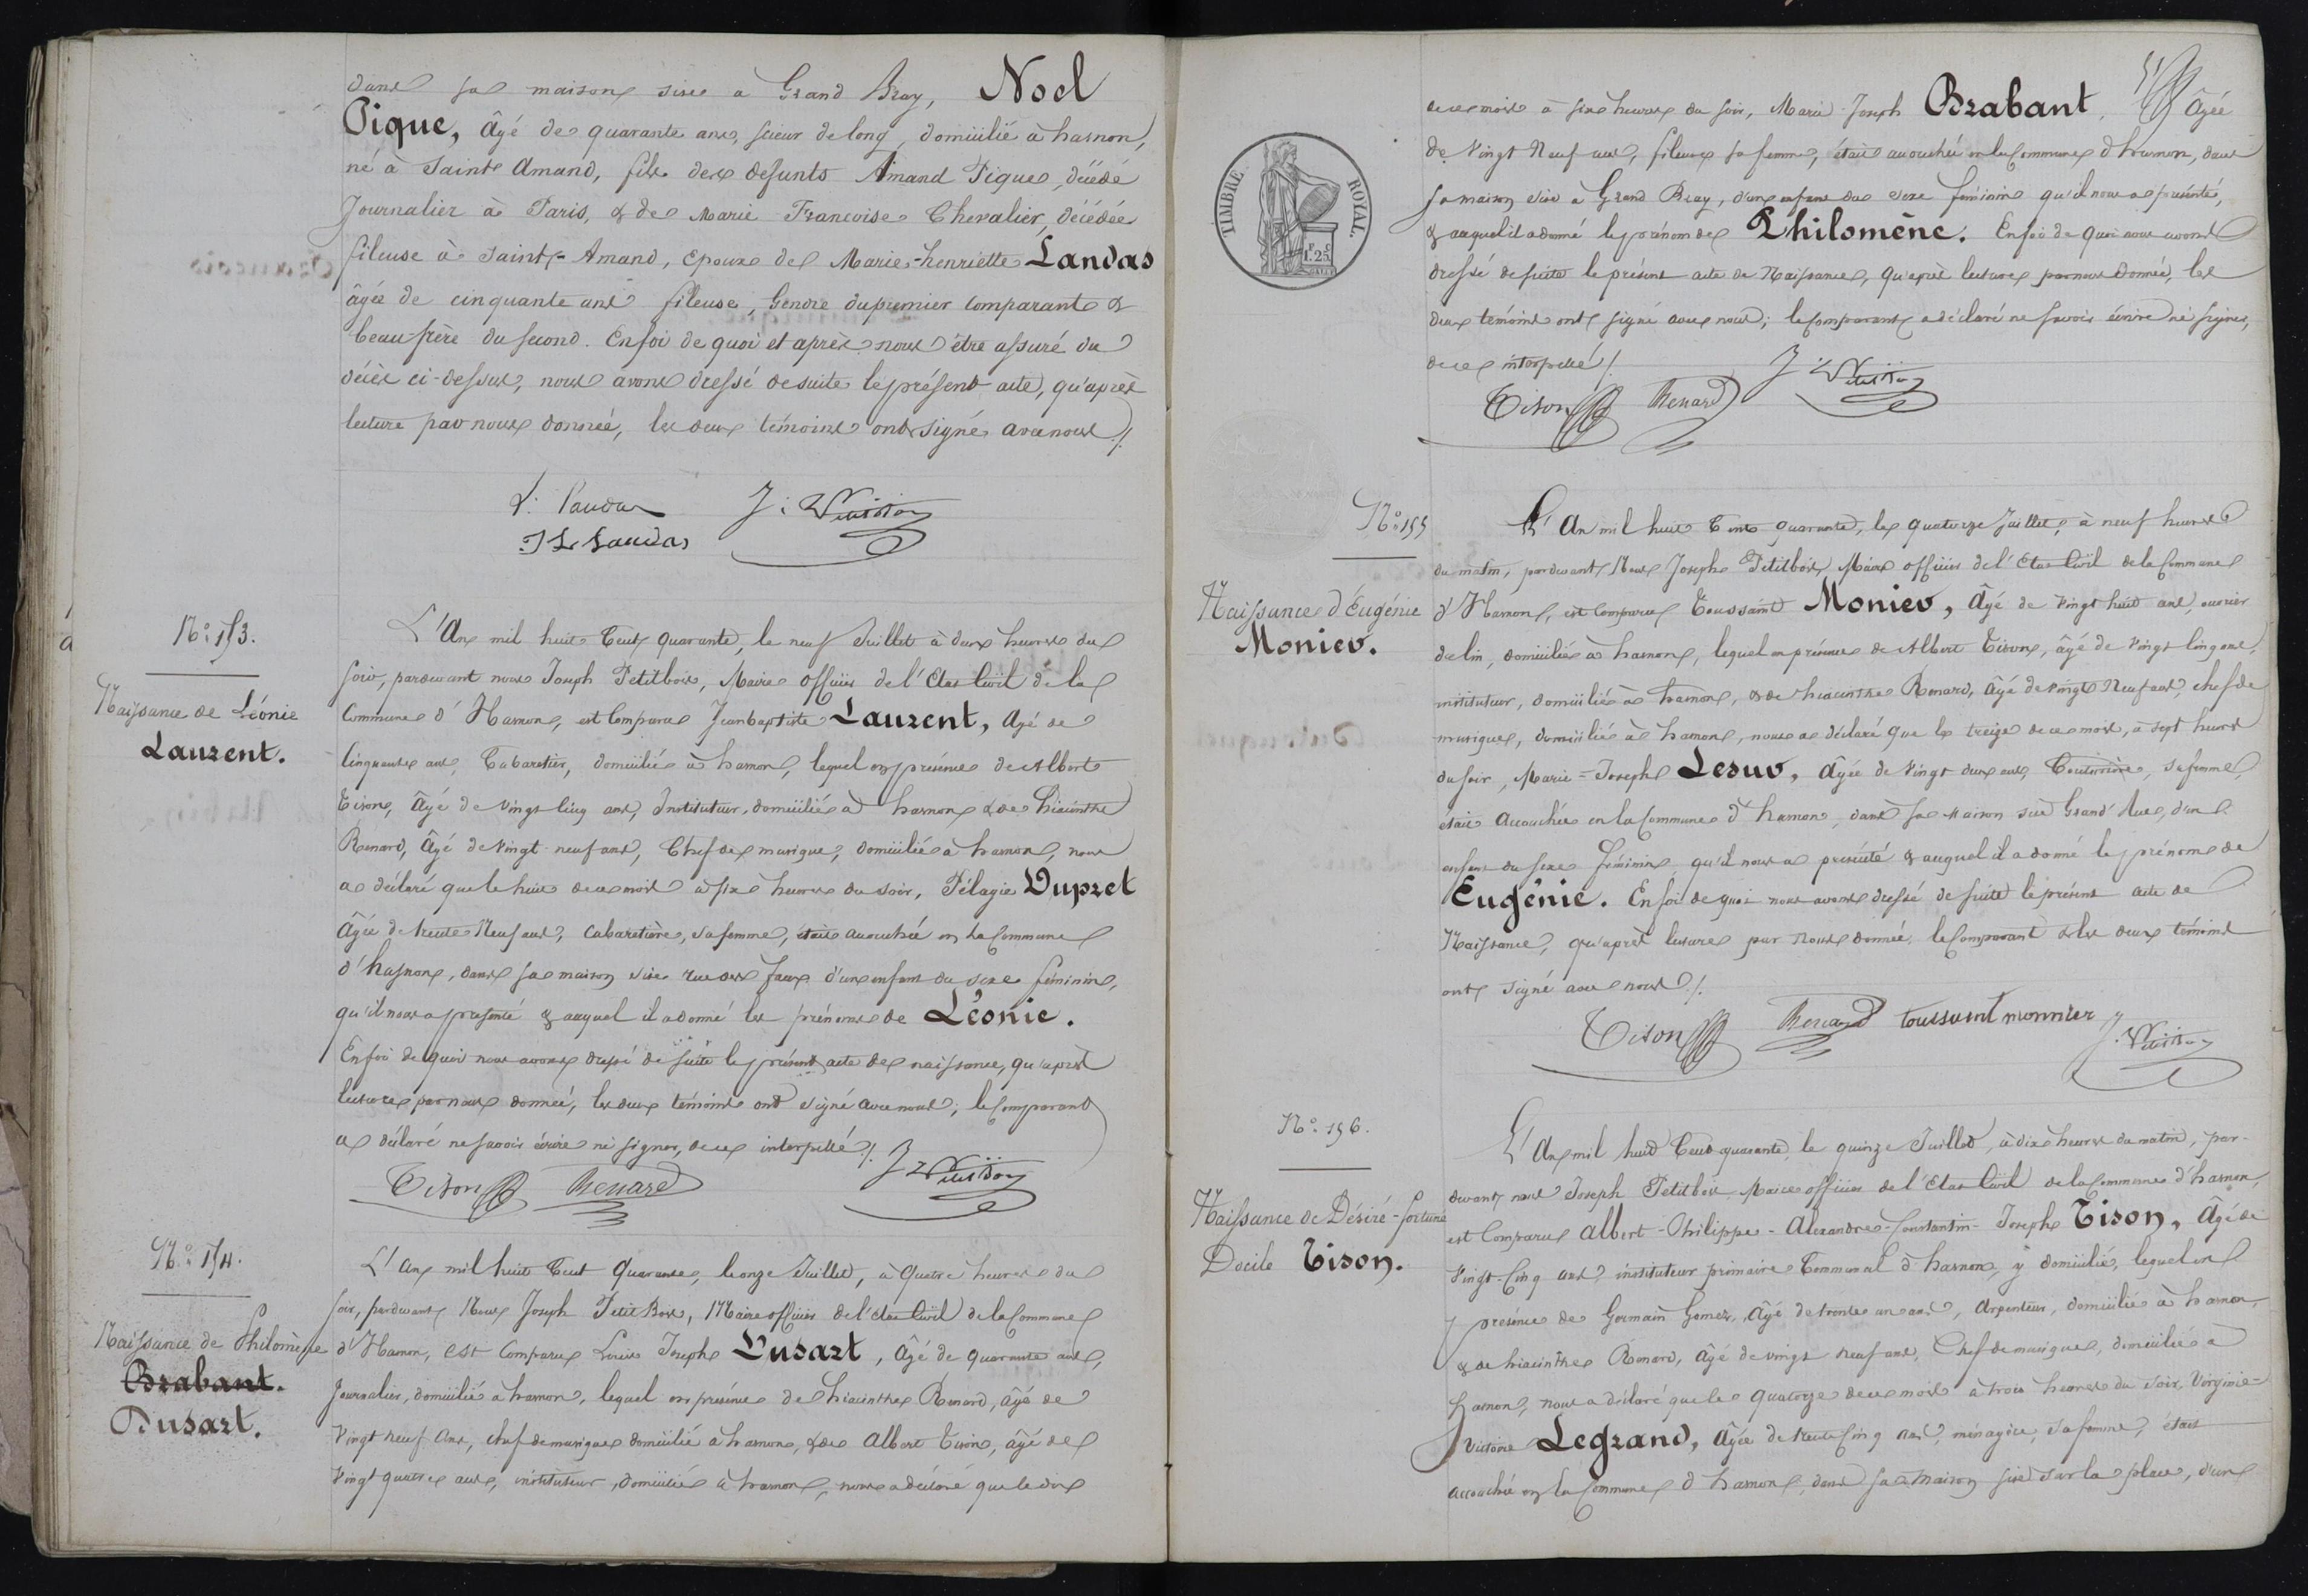 dans sa maison sise à Grand Bray, Noel
Pique, âgé de quarante ans, scieur de long, domicilié à hasnon,
né à Saint Amand, fils des defunts Amand Pique, décédé
Journalier à Paris, & de Marie Francoise Chevalier, décédée
fileuse à Saint-Amand, Epoux de Marie-henriette Landas
âgée de cinquante ans fileuse, Gendre du premier comparant &
beau-frère du second. En foi de quoi et après nous être assuré du
décès ci-dessus, nous avons dressé de suite le présent acte, qu'après
lecture par nous donnée, les deux témoins ont signé avec nous ./.
L. Landas J. Petitbois
J L Landas
N° 153.
Naissance de Léonie
Laurent.
L'An mil huit Cent quarante, le neuf Juillet à deux heures du
soir, pardevant nous Joseph Petitbois, Maire officier de l'Etat Civil de la
Commune d'Hasnon, est Comparu Jean baptiste Laurent, Agé de
Cinquante ans, Cabaretier, domicilié à hasnon, lequel en présence de Albert
Tison, Âgé de vingt Cinq ans, Instituteur, domicilié à hasnon & de hiacinthe
Renard, Âgé de vingt-neuf ans, Chef de musique, domicilié à hasnon, nous
a déclaré que le huit de ce mois à six heures du soir, Pélagie Dupret
Âgée de trente Neuf ans, Cabaretière, sa femme, était accouchée en la Commune
d'hasnon, dans sa maison sise rue des faux d'un enfant du sexe féminin,
qu'il nous a présenté & auquel il a donné les prénoms de Léonie.
En foi de quoi nous avons dressé de suite le présent acte de naissance, qu'après
lecture par nous donnée, les deux témoins ont signé avec nous; le Comparant
a déclaré ne savoir écrire ni signer, de ce interpellé ./.
Tison Renard J Petitbois
N° 154.
Naissance de Philomène
Brabant.
Dusart.
L'An mil huit Cent Quarante, le onze Juillet, à Quatre heures du
soir, pardevant Nous Joseph Petit Bois, Maire officier de l'état Civil de la Commune
d'Hasnon, est Comparu Louis Joseph Dusart, âgé de quarante ans,
Journalier, domicilié à hasnon, lequel en présence de hiacinthe Renard, âgé de
Vingt neuf Ans, chef de musique domicilié à hasnon, & de Albert Tison, âgé de
Vingt quatre ans, instituteur, domicilié à hasnon, nous a déclaré que le dix
de ce mois à six heures du soir, Marie Joseph Brabant, Âgée
de Vingt Neuf ans, fileuse sa femme, était accouchée en la Commune d'hasnon, dans
sa maison sise à Grand Bray, d'un enfant du sexe féminin qu'il nous a présenté,
& auquel il a donné le prénom de Philomène. En foi de quoi nous avons
dressé de suite le présent acte de Naissance, qu'après lecture par nous donnée, les
deux témoins ont signé avec nous; le Comparant a déclaré ne savoir écrire ni signer,
de ce interpellé ./.
Tison Renard J. Petitbois
TIMBRE ROYAL.
F. C
1. 25
N° 155
Naissance d'Eugénie
Monier.
L'An mil huit Cent quarante, le quatorze Juillet, à neuf heures
du matin, pardevant Nous Joseph Petitbois, Maire officier de l'Etat Civil de la Commune
d'Hasnon, est Comparu Toussaint Monier, Âgé de vingt huit ans, ouvrier
de lin, domicilié à hasnon, lequel en présence de Albert Tison, âgé de vingt Cinq ans,
instituteur, domicilié à hasnon, & de hiacinthe Renard, Âgé de vingt Neuf ans, chef de
musique, domicilié à hasnon, nous a déclaré que le treize de ce mois, à sept heures
du soir, Marie-Joseph Lesur, Âgée de Vingt deux ans, Couturière, sa femme,
était Accouchée en la Commune d'hasnon, dans sa Maison sise Grand'Rue, d'un
enfant du sexe féminin qu'il nous a présenté & auquel il a donné le prénom de
Eugénie. En foi de quoi nous avons dressé de suite le présent acte de
Naissance, qu'après lecture par Nous donnée, le Comparant & les deux témoins
ont signé avec nous ./.
Tison Renard toussaint monnier J. Petitbois
N° 156.
Naissance de Désiré-fortuné
Docile Tison.
L'An mil huit Cent quarante, le quinze Juillet, à dix heures du matin, par-
devant nous Joseph Petitbois, Maire officier de l'Etat Civil de la Commune d'hasnon,
est Comparu Albert-Philippe-Alexandre-Constantin-Joseph Tison, Âgé de
Vingt-Cinq ans, instituteur primaire Communal d'hasnon, y domicilié, lequel en
présence de Germain Gomez, Âgé de trente un ans, Arpenteur, domicilié à hasnon,
& de hiacinthe Renard, Âgé de vingt neuf ans, Chef de musique, domicilié à
hasnon, nous a déclaré que le quatorze de ce mois à trois heures du soir, Virginie-
Victoire Legrand, Âgée de trente Cinq ans, ménagère, sa femme, était
accouchée en la Commune d'hasnon, dans sa maison sise sur la place, d'un